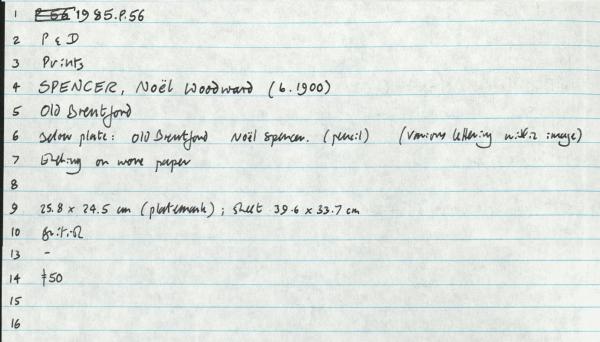 1 P 56 1985.P.56
2 P & D
3 Prints
4 SPENCER, Noël Woodward (b. 1900)
5 Old Brentford
6 Below plate: Old Brentford Noël Spencer. (pencil) (various lettering within image)
7 Etching on wove paper
8
9 25.8 x 24.5 cm (platemark); sheet 39.6 x 33.7 cm
10 British
13 -
14 £50
15
16